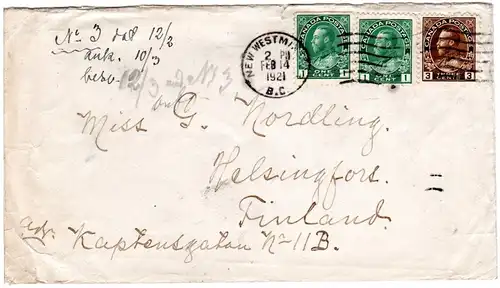 No 3 dat 12/2
ank. 10/3
besv.
12/3 med No 3
NEW WESTMI
2 PM
FEB 14
1921
B.C.
CANADA POSTAGE
1 ONE CENT 1
CANADA POSTAGE
1 CENT 1
CANADA POSTAGE
3 THREE CENTS 3
Miss G. Nordling.
Helsingfors.
Finland.
Adr. Kaptensgatan No 11B.